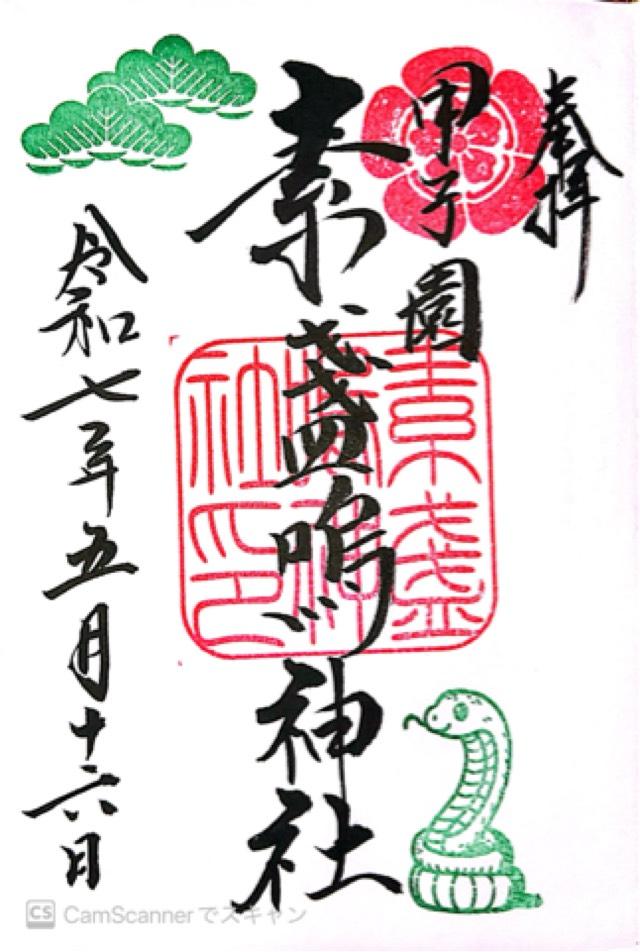 奉拝
甲子園
素盞嗚神社
素盞
嗚神
社印
令和七年五月十六日
CS CamScannerでスキャン